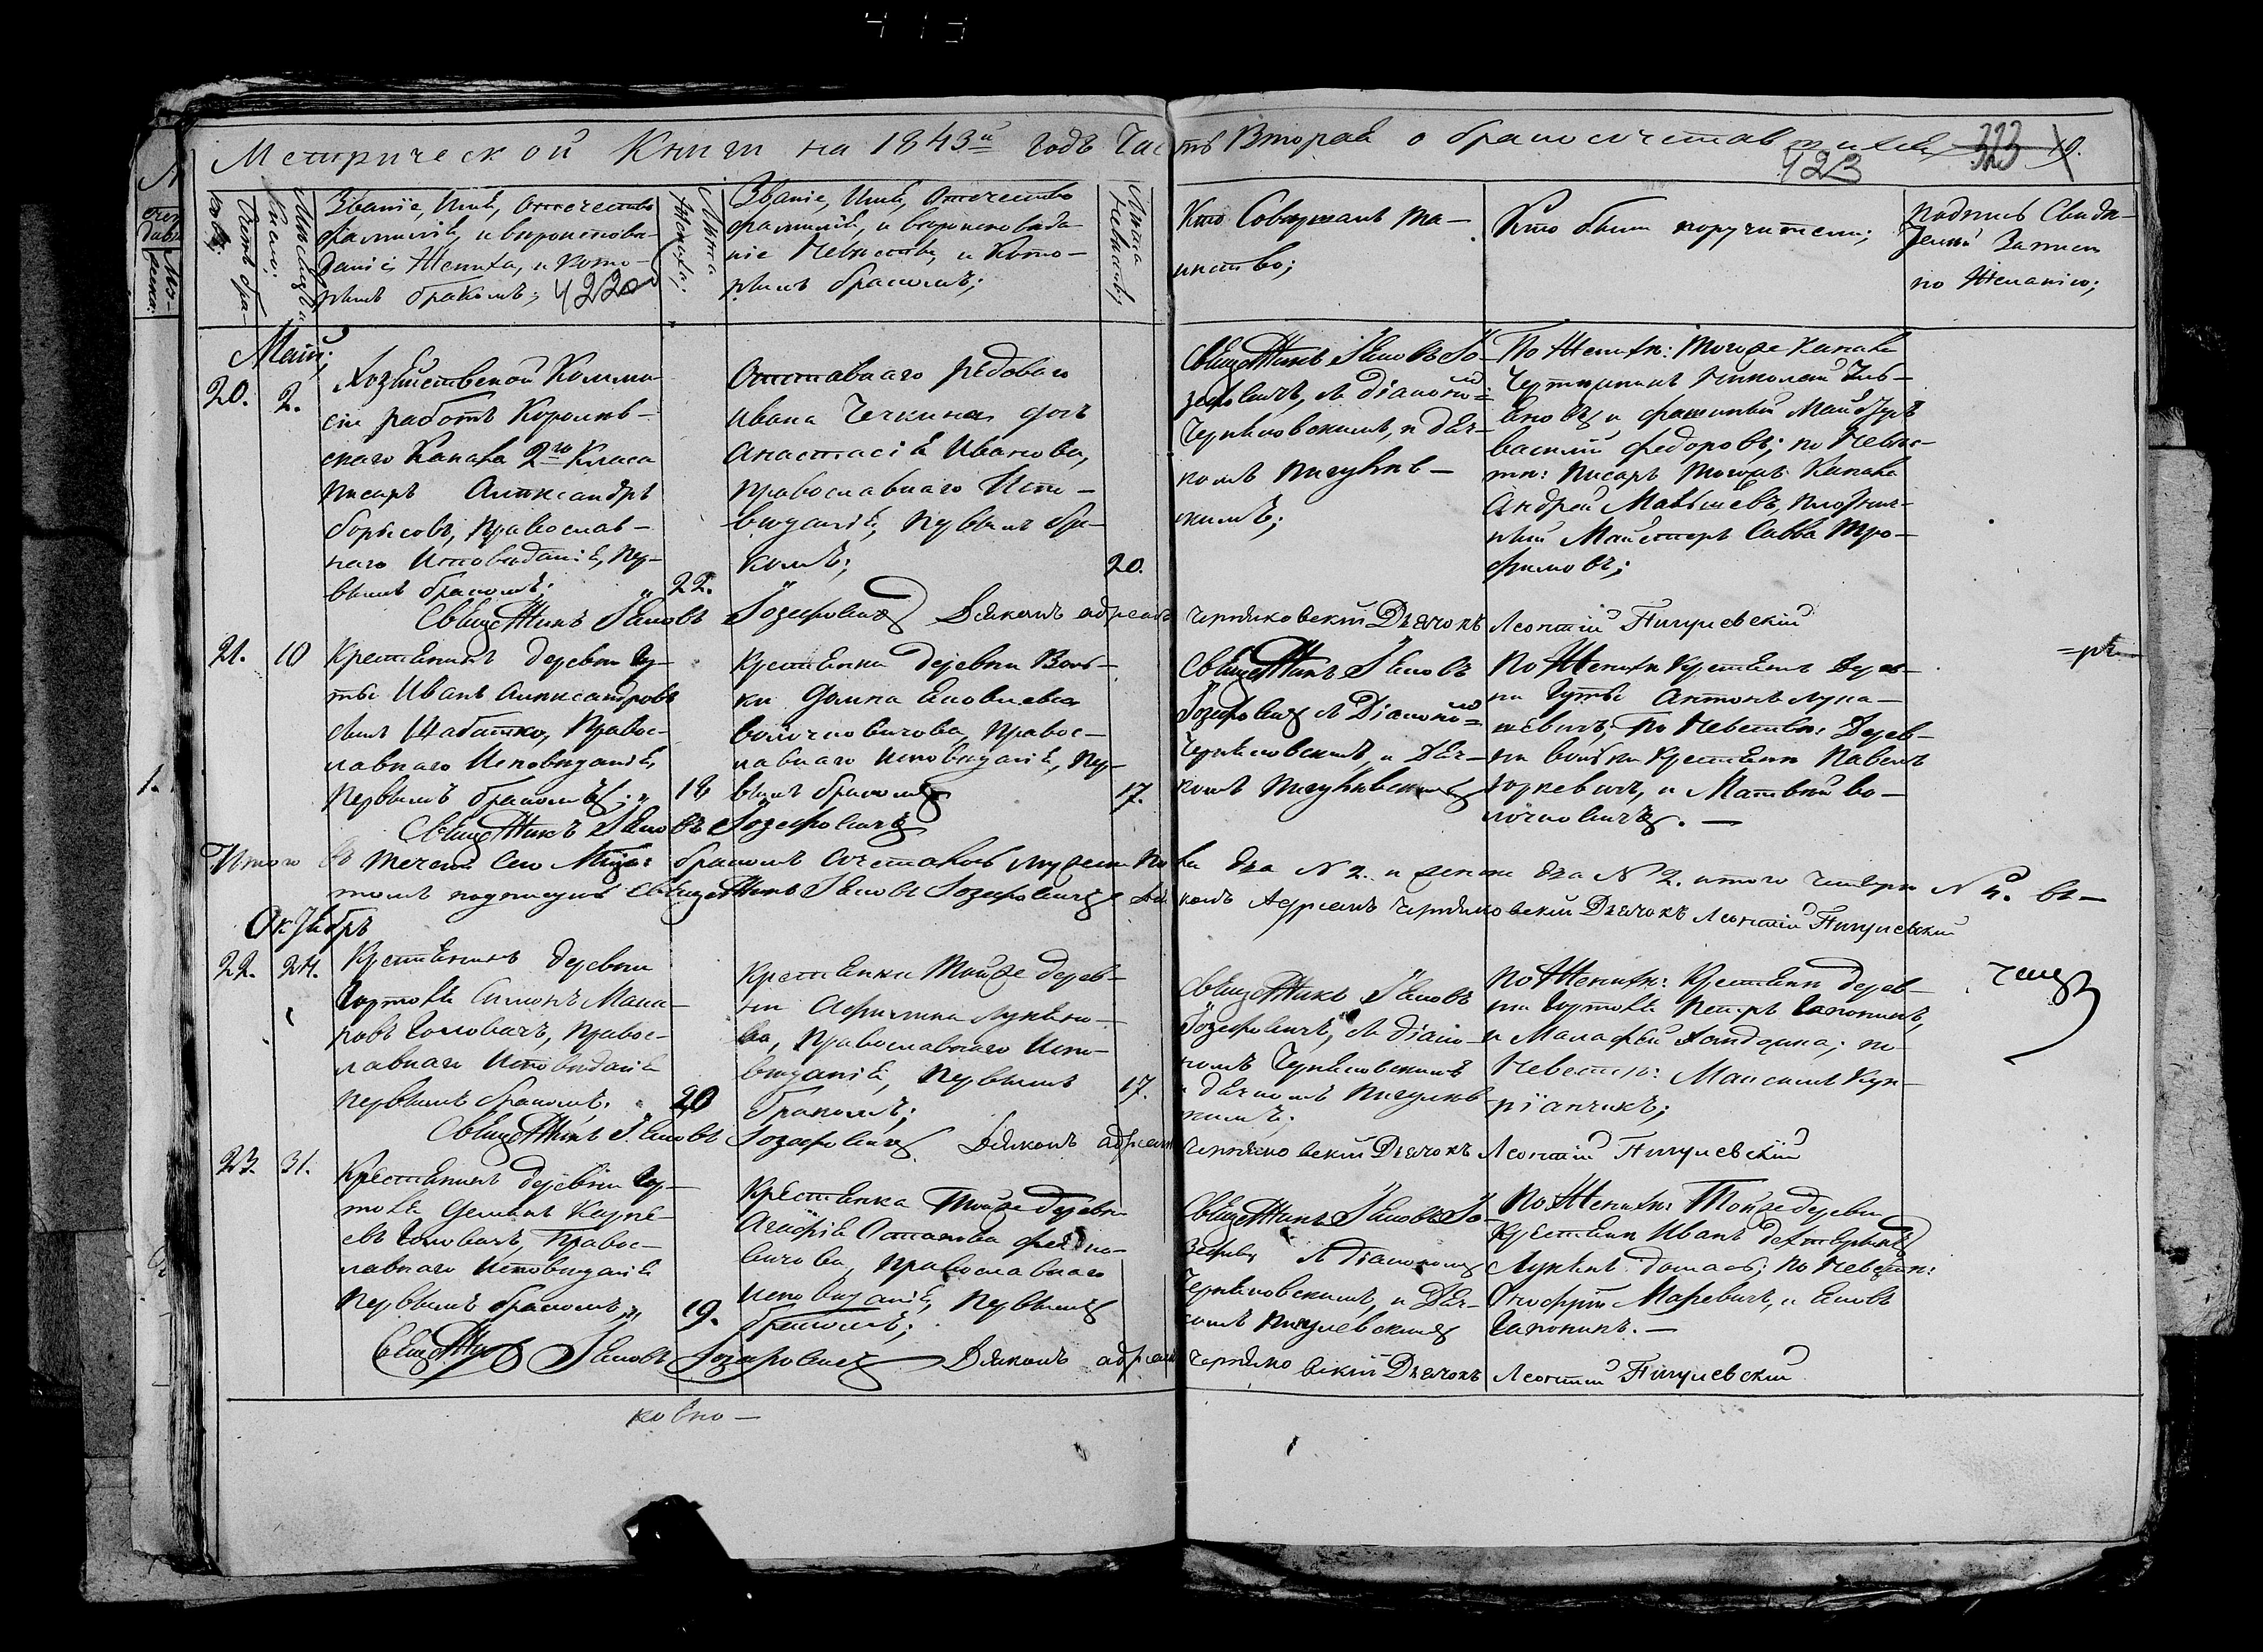 413
Метрической Книги на 1843й годъ Часть Вторая о бракосочетавшихся
323
423
19.
Счетъ бра-
ковъ.
Мѣсяцъ и
число;
Званіе, Имя, Отечество
фамилія, и вѣроисповѣ-
даніе Жениха, и кото-
рымъ бракомъ; 422
Лѣта
Жениха;
Званіе, Имя, Отечество
фамилія, и вѣроисповѣда-
ніе Невѣсты, и Кото-
рымъ бракомъ;
Лѣта
Невѣсты;
Кто Совершалъ Та-
инство;
Кто были поручители;
Подпись Свидѣ-
телей Записи
по Желанію;
Май;
20.
2.
Хозяйственной Комми-
сіи работъ Королев-
скаго Канала 2го Класа
писарь Александръ
Борисовъ, Православ-
наго Исповѣданія, пер-
вымъ бракомъ;
22.
Отставнаго рядоваго
Ивана Чечкина дочь
Анастасія Иванова,
православнаго Испо-
вѣданія, первымъ бра-
комъ;
20.
Священникъ Іаковъ Іо-
зефовичъ, съ діакономъ
Черняковскимъ, и дьяч-
комъ Пигулев-
скимъ;
По Женихѣ: тогоже Канала
Чертщикъ Николай
и Майстръ
Василій Федоровъ; по Невѣс-
тѣ: писарь тогожъ Канала
Андрей Малышевъ, плотнич-
ный Майстеръ Савва Тро-
фимовъ;
Священникъ Іаковъ Іозефовичъ Діаконъ Адріанъ Черняковскій Дьячокъ Леонтій Пигулевскій
21.
10
Крестьянинъ деревни Гу-
ты Иванъ Александровъ
сынъ Шабатко, Правос-
лавнаго Исповѣданія,
первымъ бракомъ;
18
Крестьянка деревни Воль-
ки Домна Яковлева
Волочковичова, Правос-
лавнаго Исповѣданія, Пер-
вымъ бракомъ
17.
Священникъ Іаковъ
Іозефовичъ съ Діакономъ
Черняковскимъ, и Дьяч-
комъ Пигулевскимъ
По Женихѣ крестьянъ Дерев-
ни Гуты Антонъ Лука-
шевичъ, По Невѣстѣ: Дерев-
ни Вольки крестьяни Павелъ
Юркевичъ, и Матвѣй Во-
лочковичъ. —
Священникъ Іаковъ Іозефовичъ
Итого въ теченіи Сего Мѣсяца: бракомъ Сочетались мужеска пола два N 2. и женска два N 2. итого четыре N 4. въ—
томъ подписуемъ Священникъ Іаковъ Іозефовичъ Діаконъ Адріанъ Черняковскій Дьячокъ Леонтій Пигулевскій
Октябрь
22.
24.
Крестьянинъ деревни
Гортоля Симонъ Мака-
ровъ Головачъ, Правос-
лавнаго Исповѣданія
первымъ бракомъ.
20
Крестьянки Тойже дерев-
ни Акулина Лукьяно-
ва, Православнаго Испо-
вѣданія, Первымъ
бракомъ;
17.
Священникъ Іаковъ
Іозефовичъ, съ діако-
номъ Черняковскимъ
и дьячкомъ Пигулев-
скимъ.
По Женихѣ: Крестьяни дерев-
ни Гортоля Петръ Гапоникъ,
и Малафей; по
Невѣстѣ: Максимъ Куп-
ріянчикъ;
Священникъ Іаковъ Іозефовичъ Діаконъ Адріанъ Черняковскій Дьячокъ Леонтій Пигулевскій
23.
31.
Крестьянинъ деревни Гор-
толя Деміанъ
Головачъ, Правос-
лавнаго Исповѣданія
первымъ бракомъ,
19.
Крестьянка Тойже деревни
Агафія Остапова
Православнаго
исповѣданія, Первымъ
бракомъ;
Священникъ Іаковъ Іо-
зефовъ съ діакономъ
Черняковскимъ, и Дьяч-
комъ Пигулевскимъ
По Женихѣ: Тойже деревни
крестьяни Иванъ
Лукьянъ; По Невѣстѣ:
Онофрій Маревичъ, и Яковъ
Гапоникъ. —
Священникъ Іаковъ Іозефовичъ Діаконъ Адріанъ Черняковскій Дьячокъ Леонтій Пигулевскій
ковно —